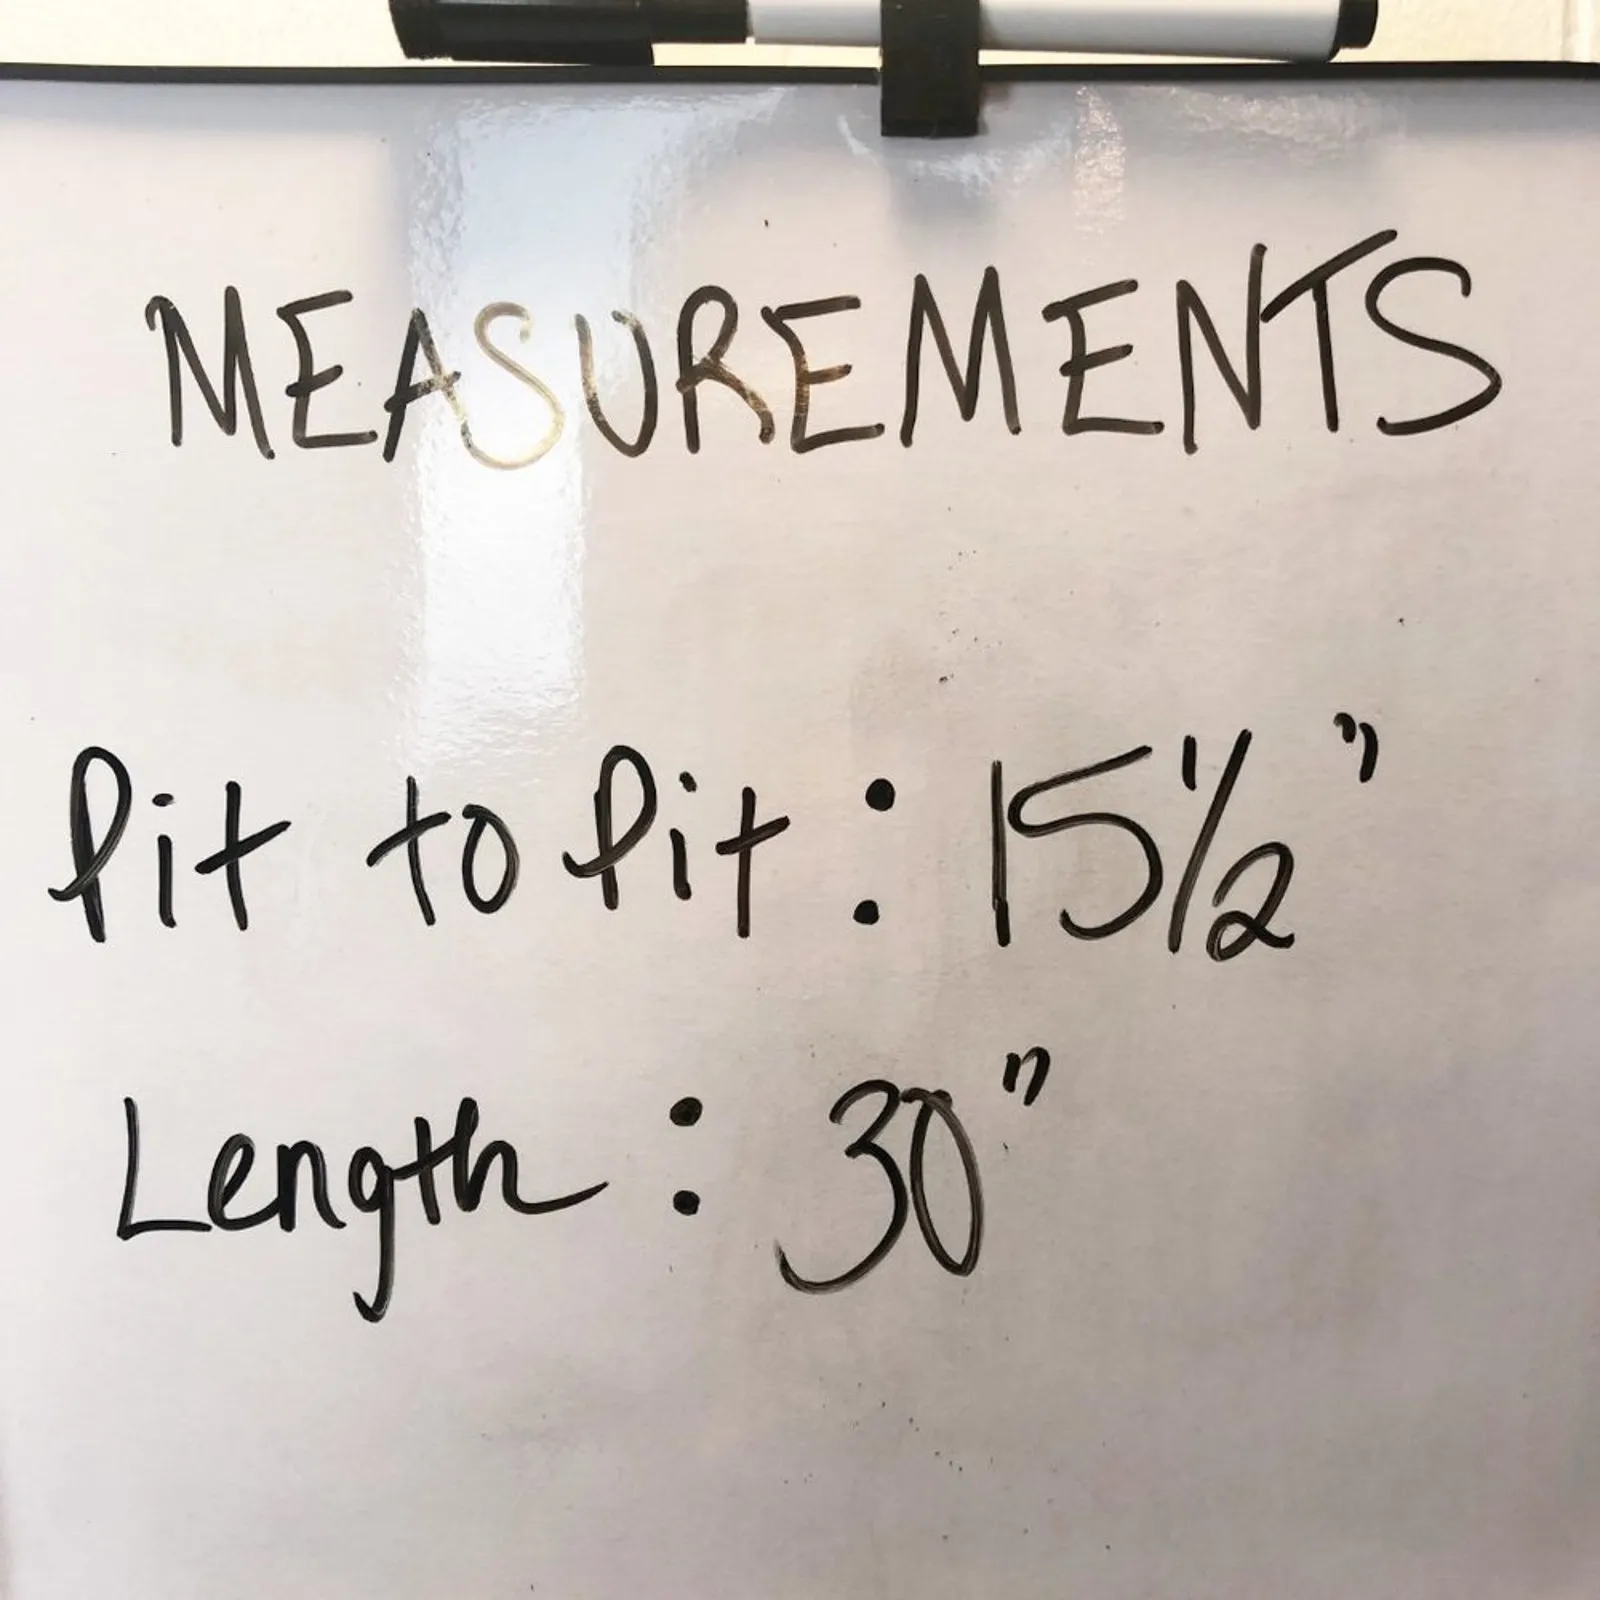 MEASUREMENTS
Pit to Pit : 15 1/2 "
Length : 30"